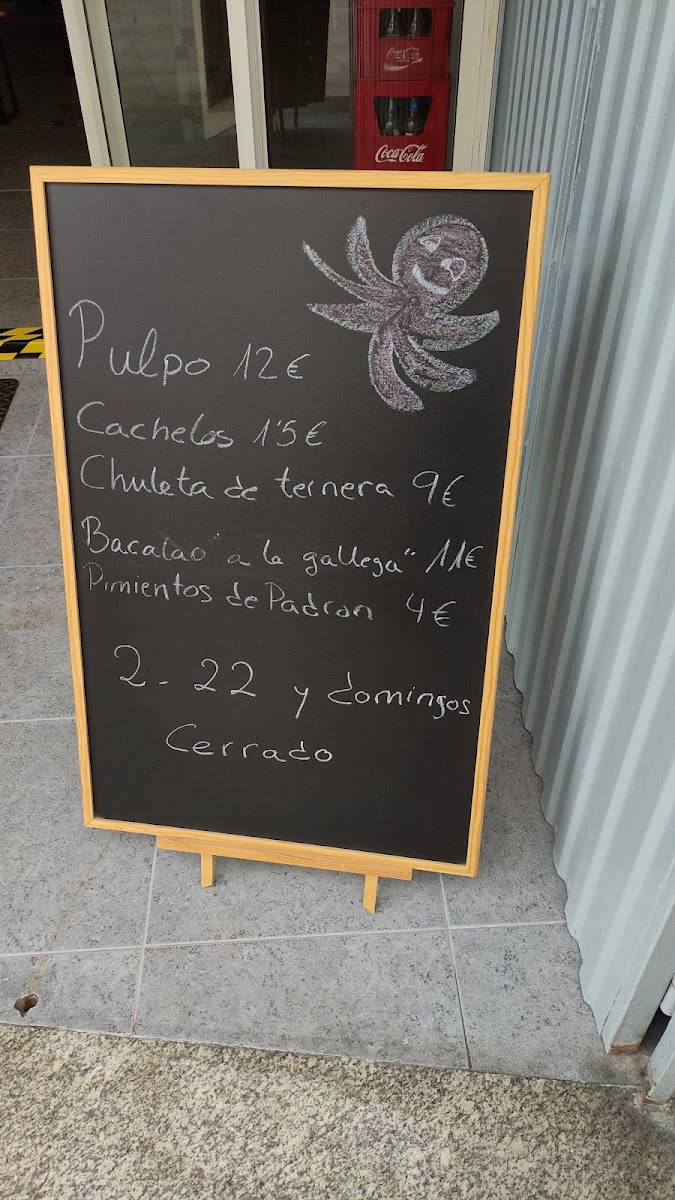 Coca-Cola
Coca-Cola
Pulpo 12€
Cachelos 1'5€
Chuleta de ternera 9€
Bacalao "a la gallega" 11€
Pimientos de Padron 4€
2 - 22 y domingos
Cerrado